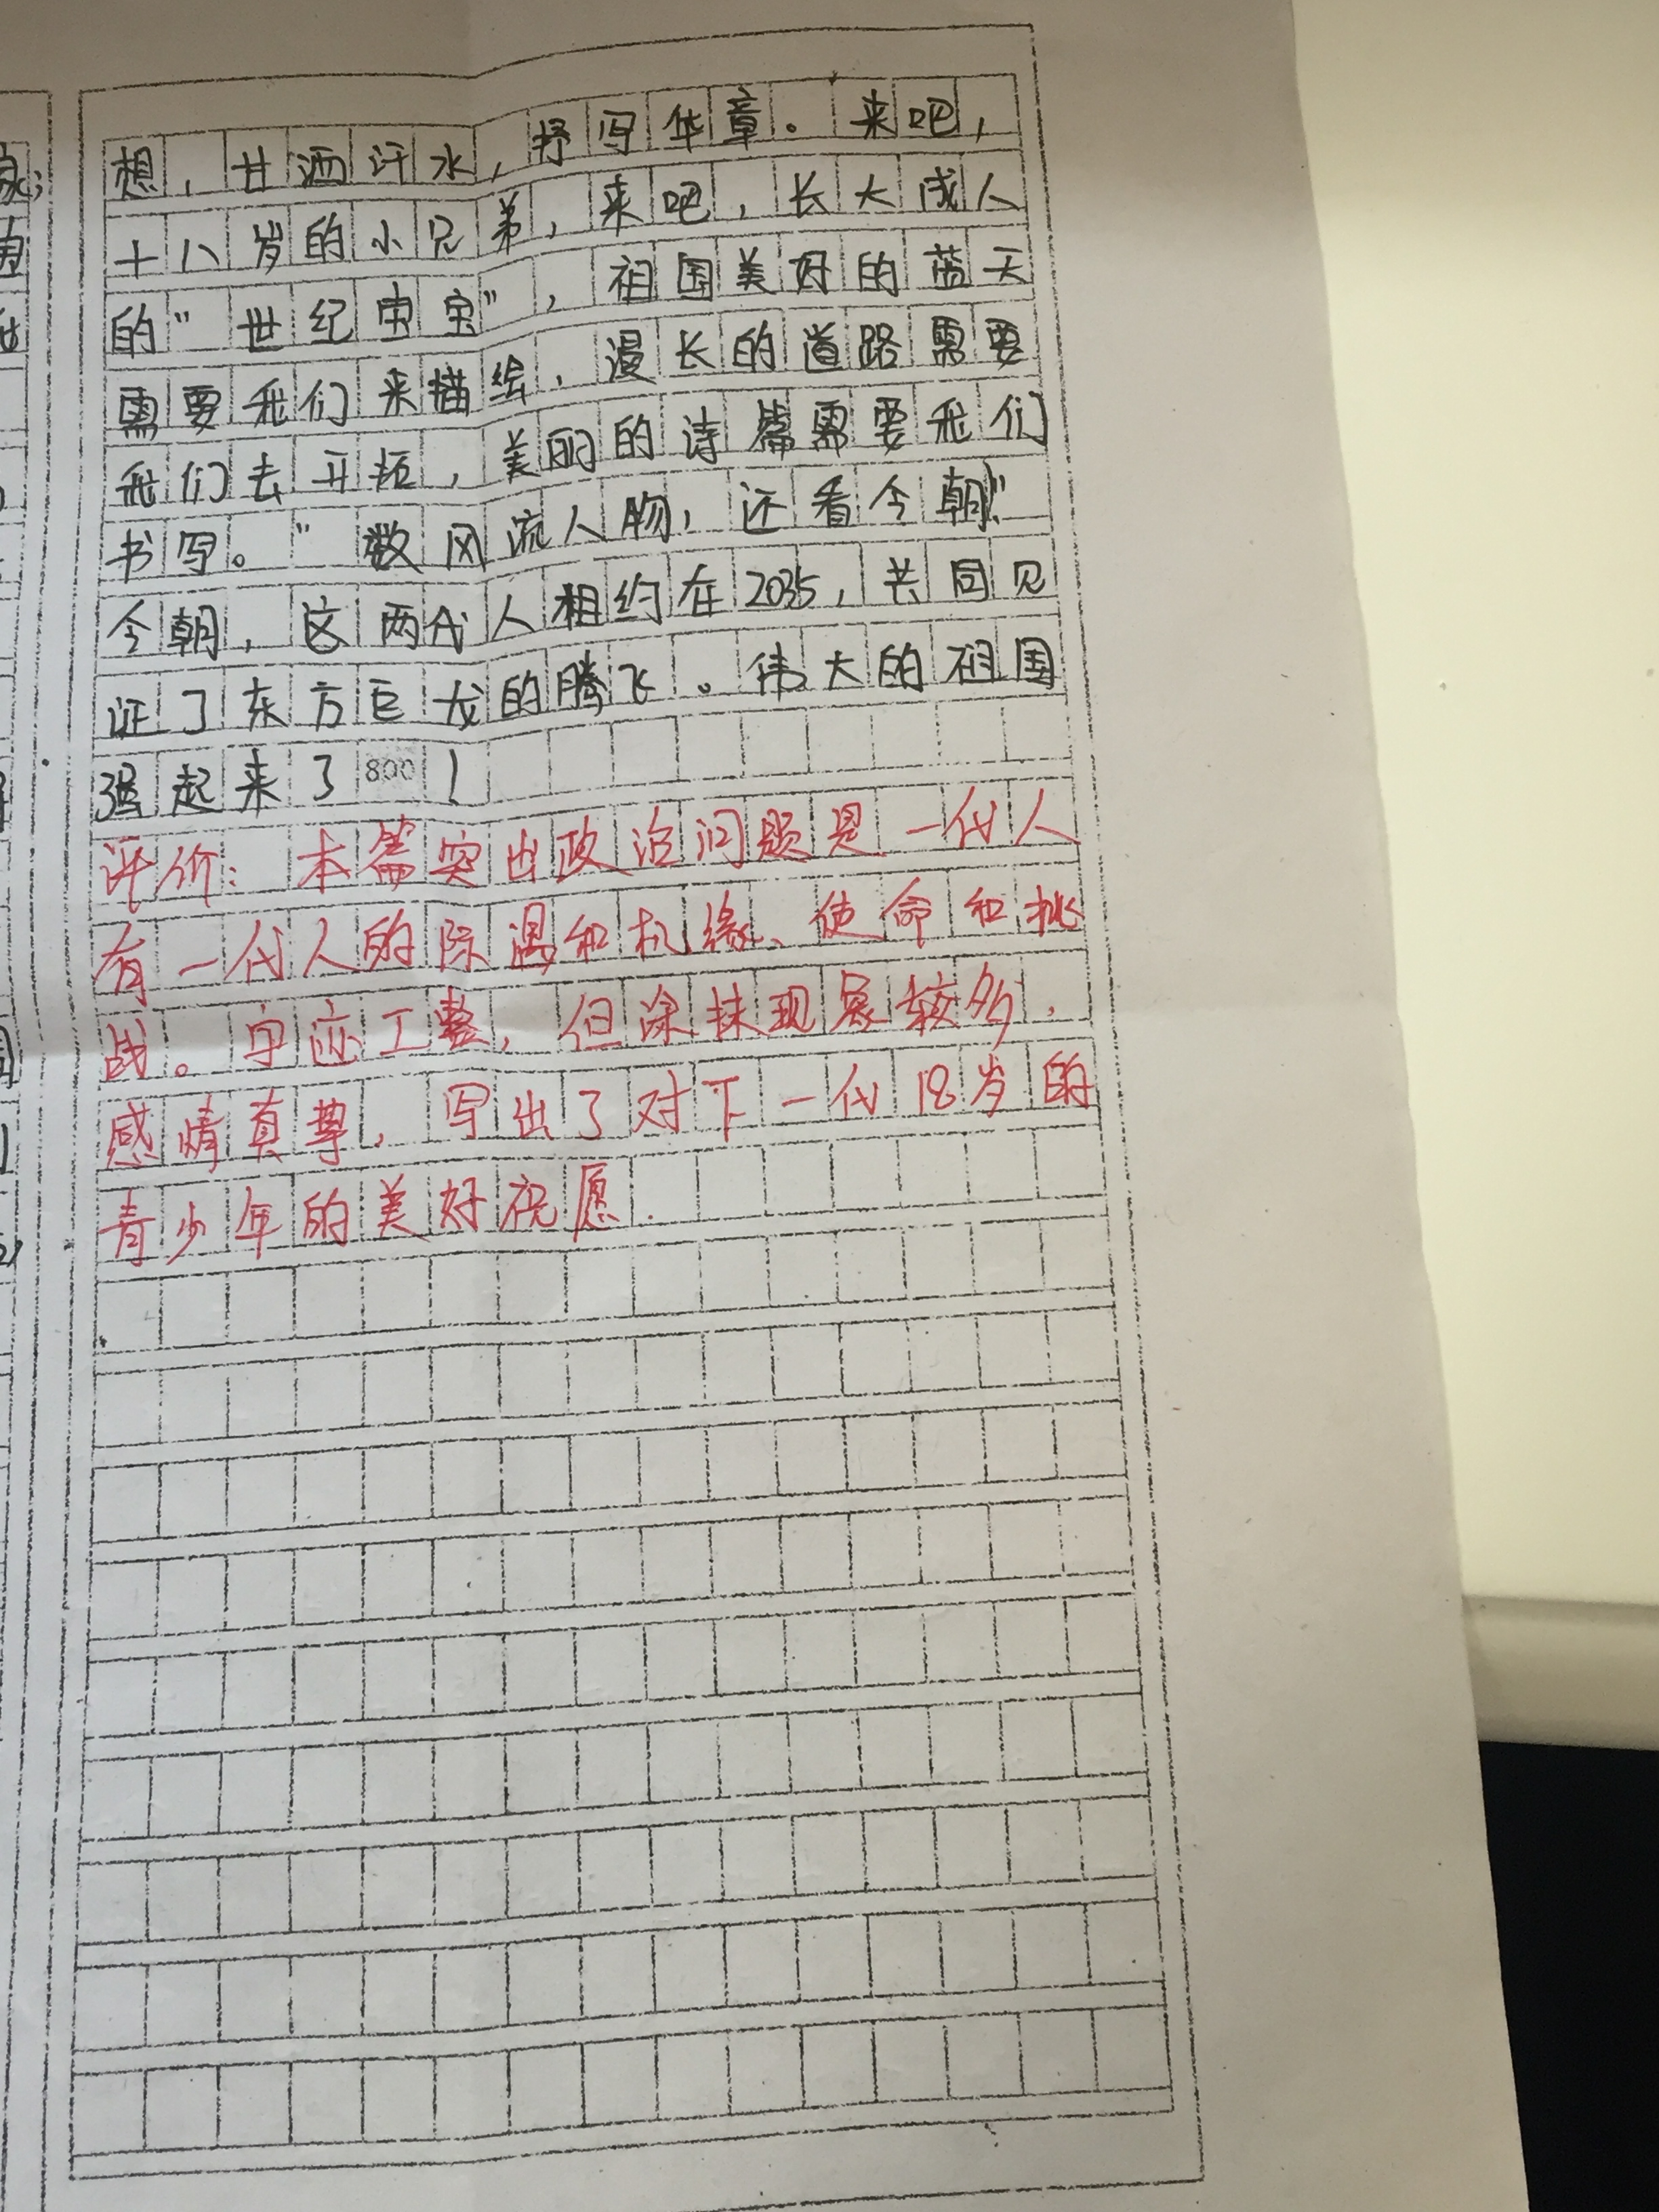 想，甘洒汗水，抒写华章。来吧，
十八岁的小兄弟，来吧，长大成人
的"世纪宝宝"，祖国美好的蓝天
需要我们来描绘，漫长的道路需要
我们去开拓，美丽的诗篇需要我们
书写。"数风流人物，还看今朝"
今朝，这两代人相约在2035，共同见
证了东方巨龙的腾飞。伟大的祖国
强起来了！
800
评价：本篇突出政治问题是一代人
有一代人的际遇和机缘、使命和挑
战。字迹工整，但涂抹现象较多，
感情真挚，写出了对下一代18岁的
青少年的美好祝愿.